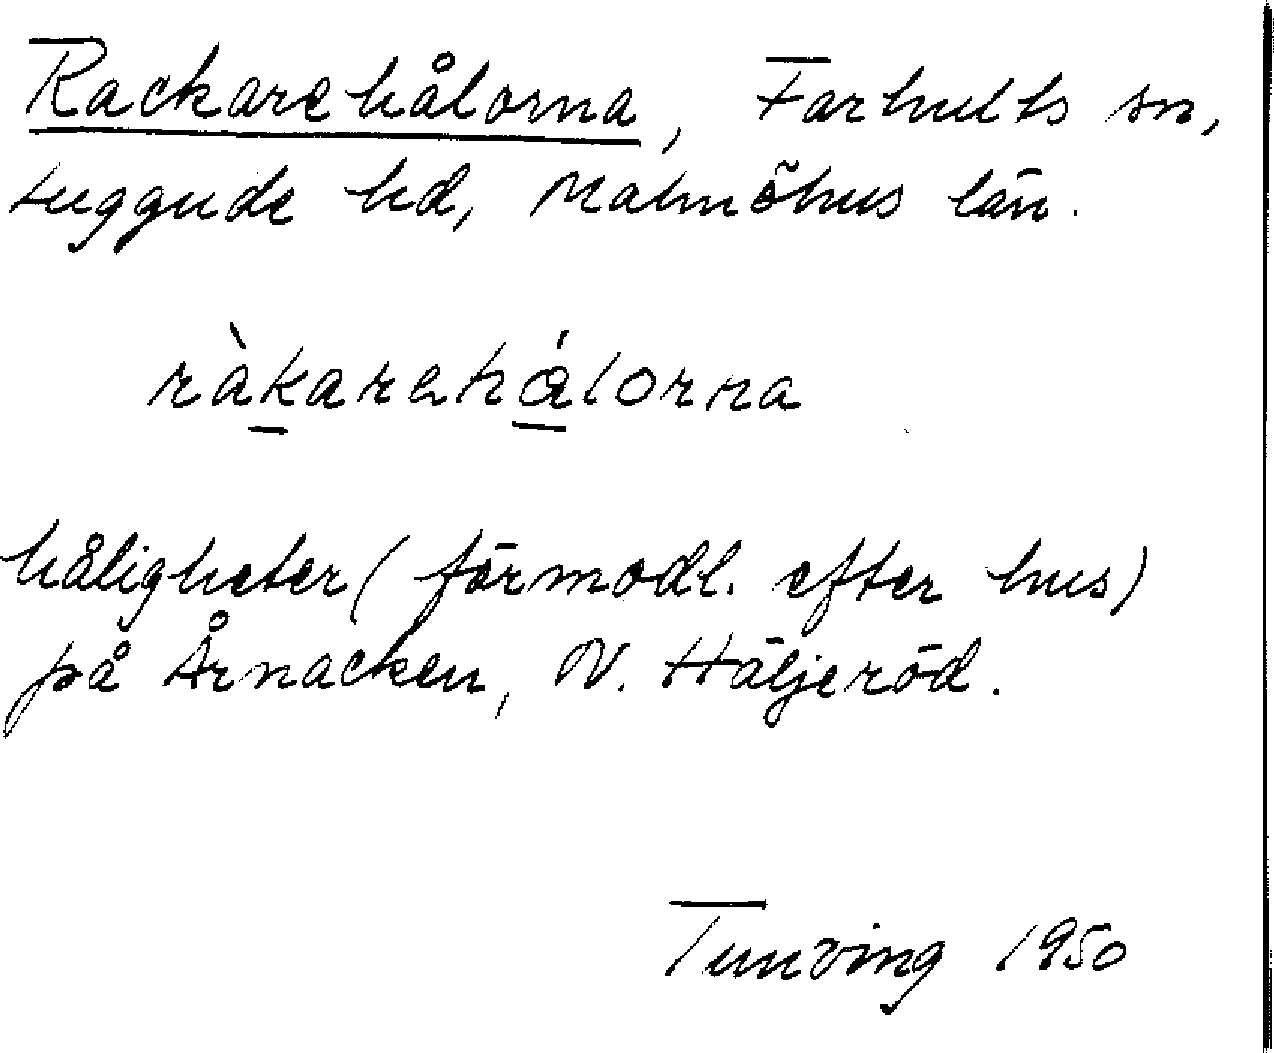 Rackarehålorna, Farhults sn,
Luggude hd, Malmöhus län.
ràkarehálorna
håligheter (förmodl. efter hus)
på Årnacken, N. Häljeröd.
Tunving 1950